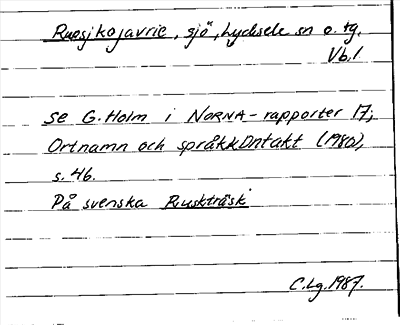 Rupsjkojavrie, sjö, Lycksele sn o. tg,
Vb.l
se G. Holm i NORNA-rapporter 17;
Ortnamn och språkkontakt (1980),
s. 46.
På svenska Ruskträsk
C.Lg. 1987.